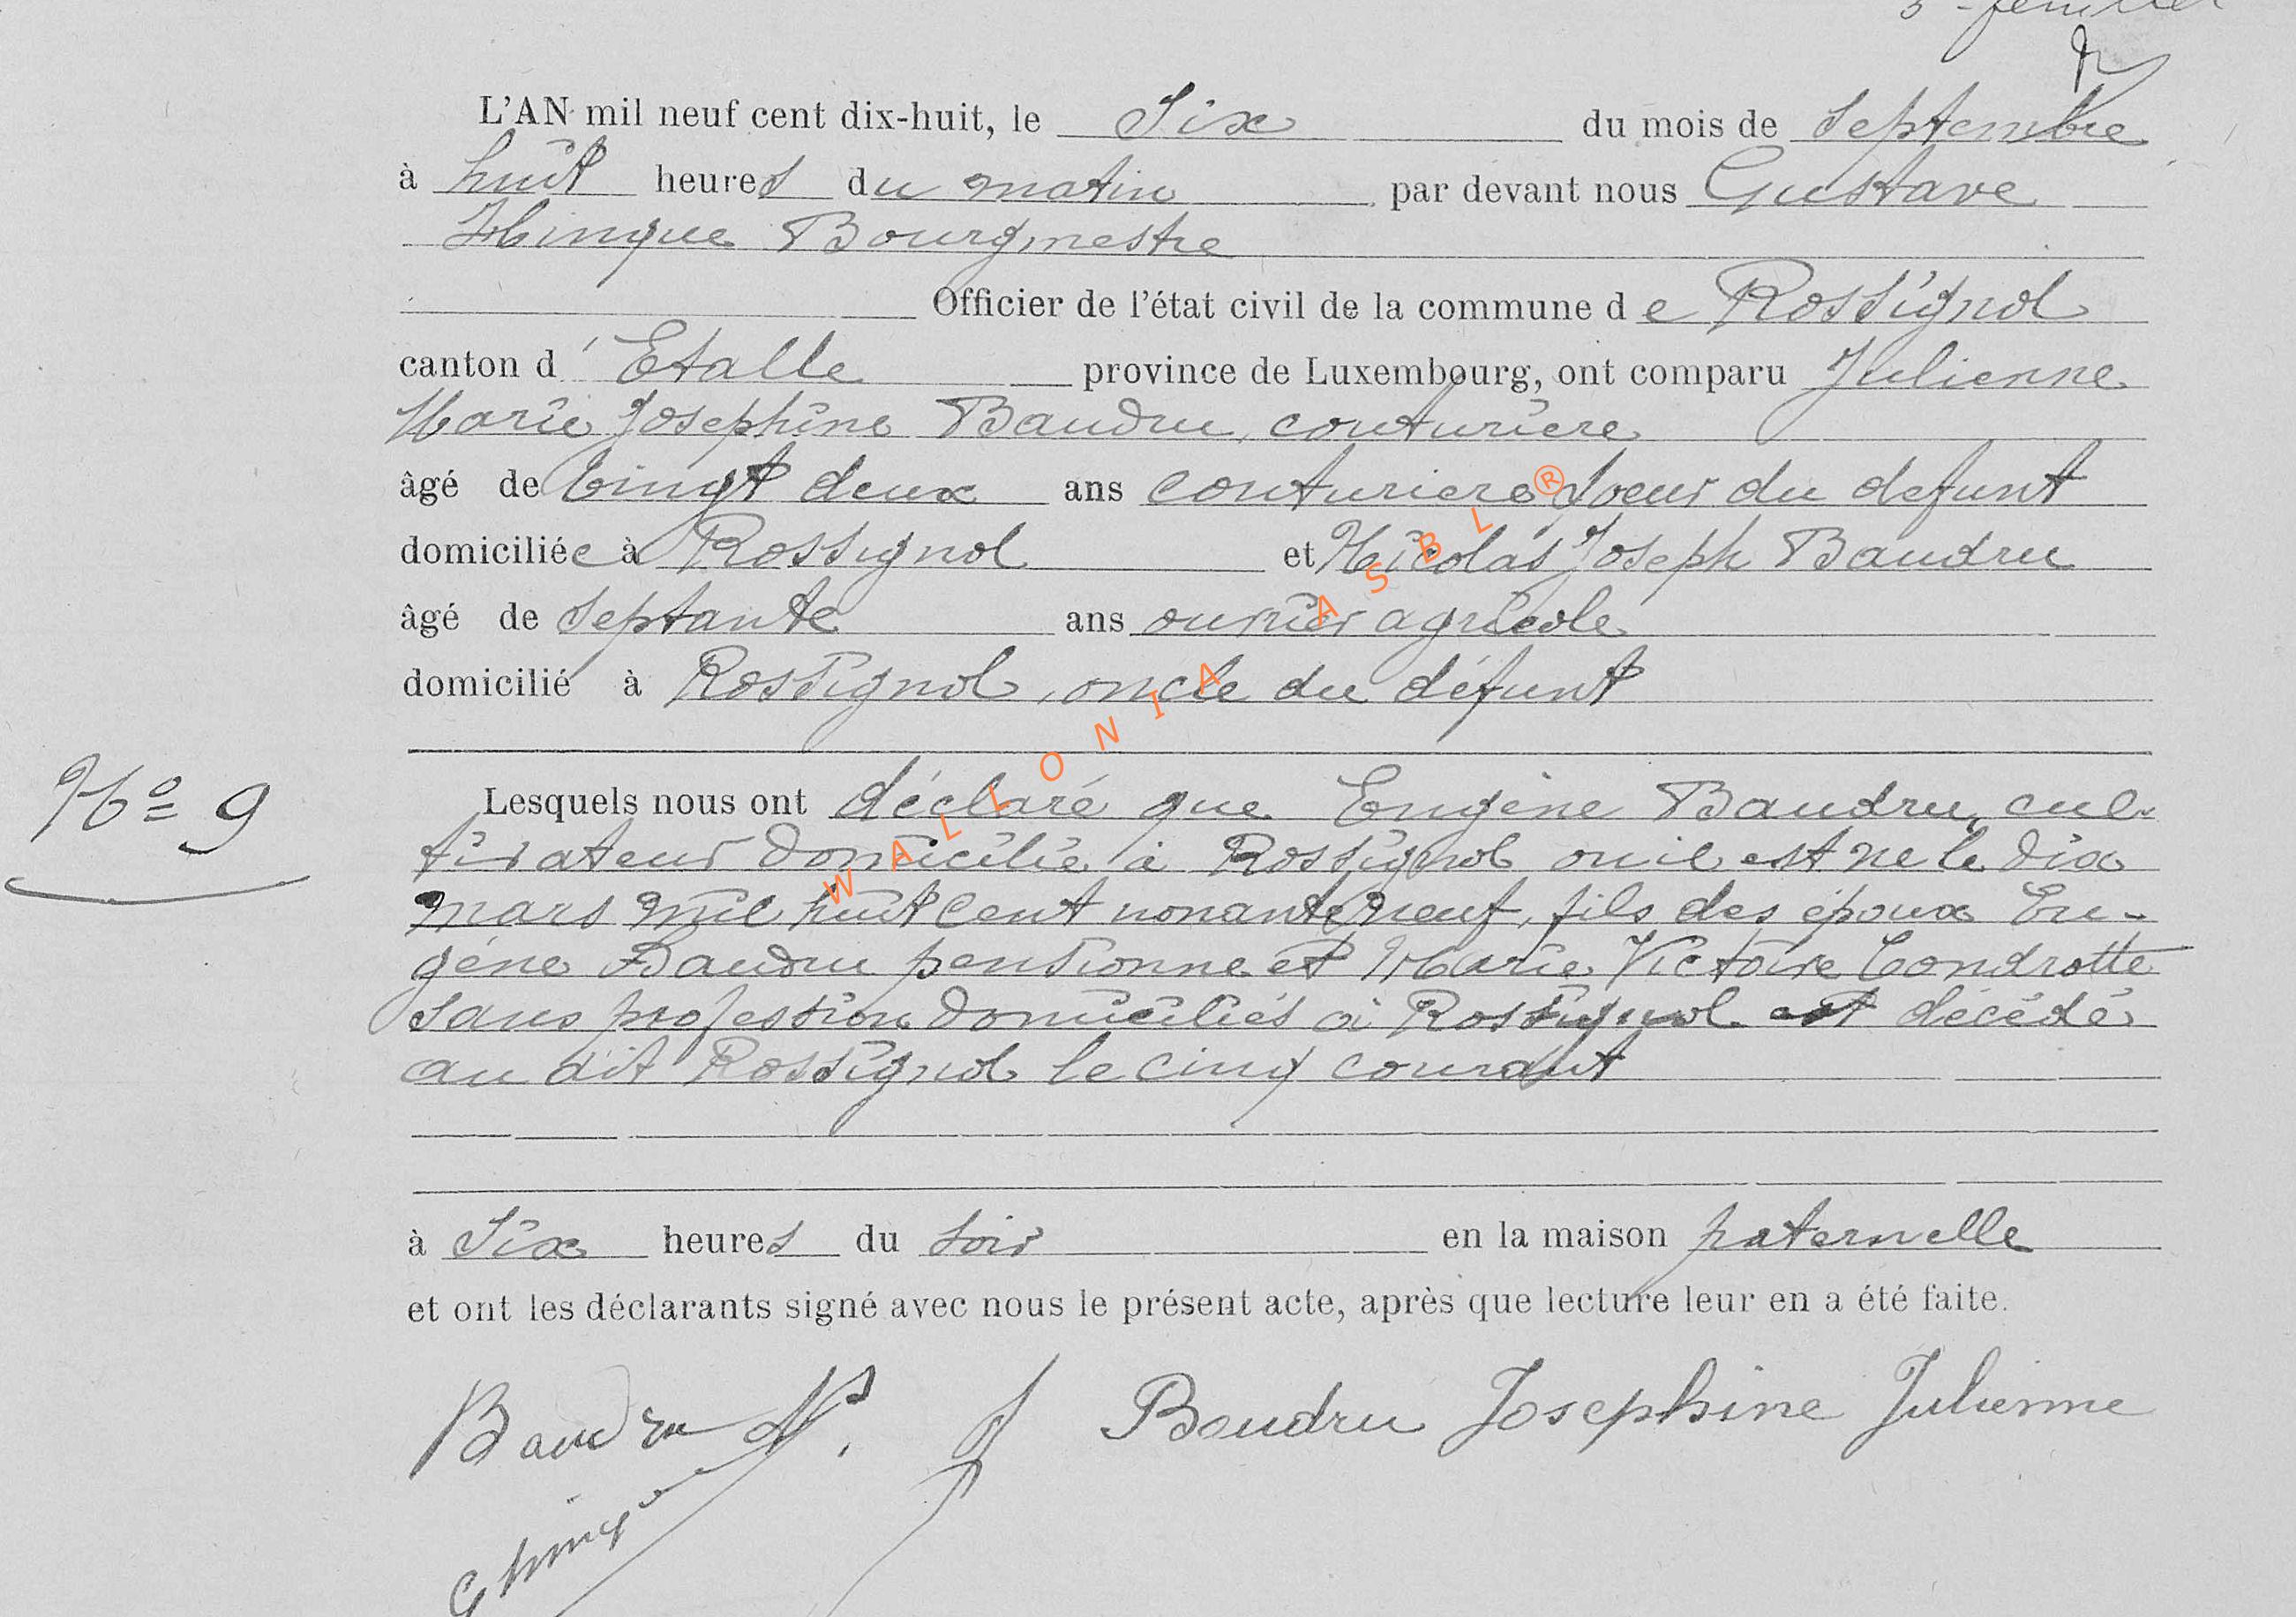 3e feuillet
L'AN mil neuf cent dix-huit, le Six du mois de Septembre
à huit heures du matin par devant nous Gustave
Hinque Bourgmestre
Officier de l'état civil de la commune de Rossignol
canton d'Etalle province de Luxembourg, ont comparu Julienne
Marie Josephine Baudru, couturière
âgé de vingt deux ans couturière Soeur du defunt
domiciliée à Rossignol et Nicolas Joseph Baudru
âgé de Septante ans ouvrier agricole
domicilié à Rossignol, oncle du défunt
No 9
Lesquels nous ont déclaré que Eugène Baudru, cul-
tivateur domicilié à Rossignol ou il est né le dix
mars mil huit cent nonante neuf, fils des époux Eu-
gène Baudru pensionné et Marie Victoire Condrotte
sans profession domiciliés à Rossignol est décédé
au dit Rossignol le cinq courant
à Six heures du soir en la maison paternelle
et ont les déclarants signé avec nous le présent acte, après que lecture leur en a été faite.
Baudru N. J Baudru Josephine Julienne
G Hinque
WALLONIA ASBL ®